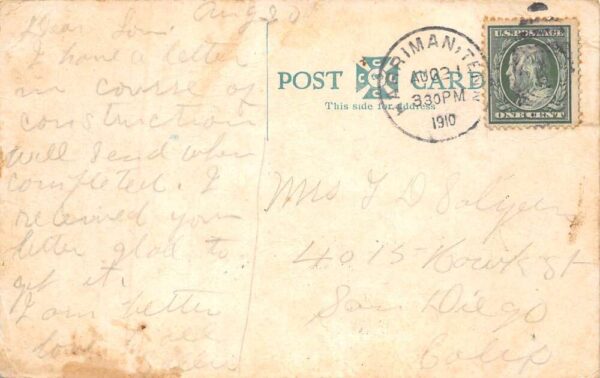 Aug 20
Dear Lou.
I have a letter
in course of
construction
will send when
completed. I
received your
letter glad to
get it.
I am better
love to all
POST CARD
This side for address
HARRIMAN, TENN.
AUG 21
330 PM
1910
U.S. POSTAGE
ONE CENT
Mrs
4015 Hawk St
San Diego
Calif